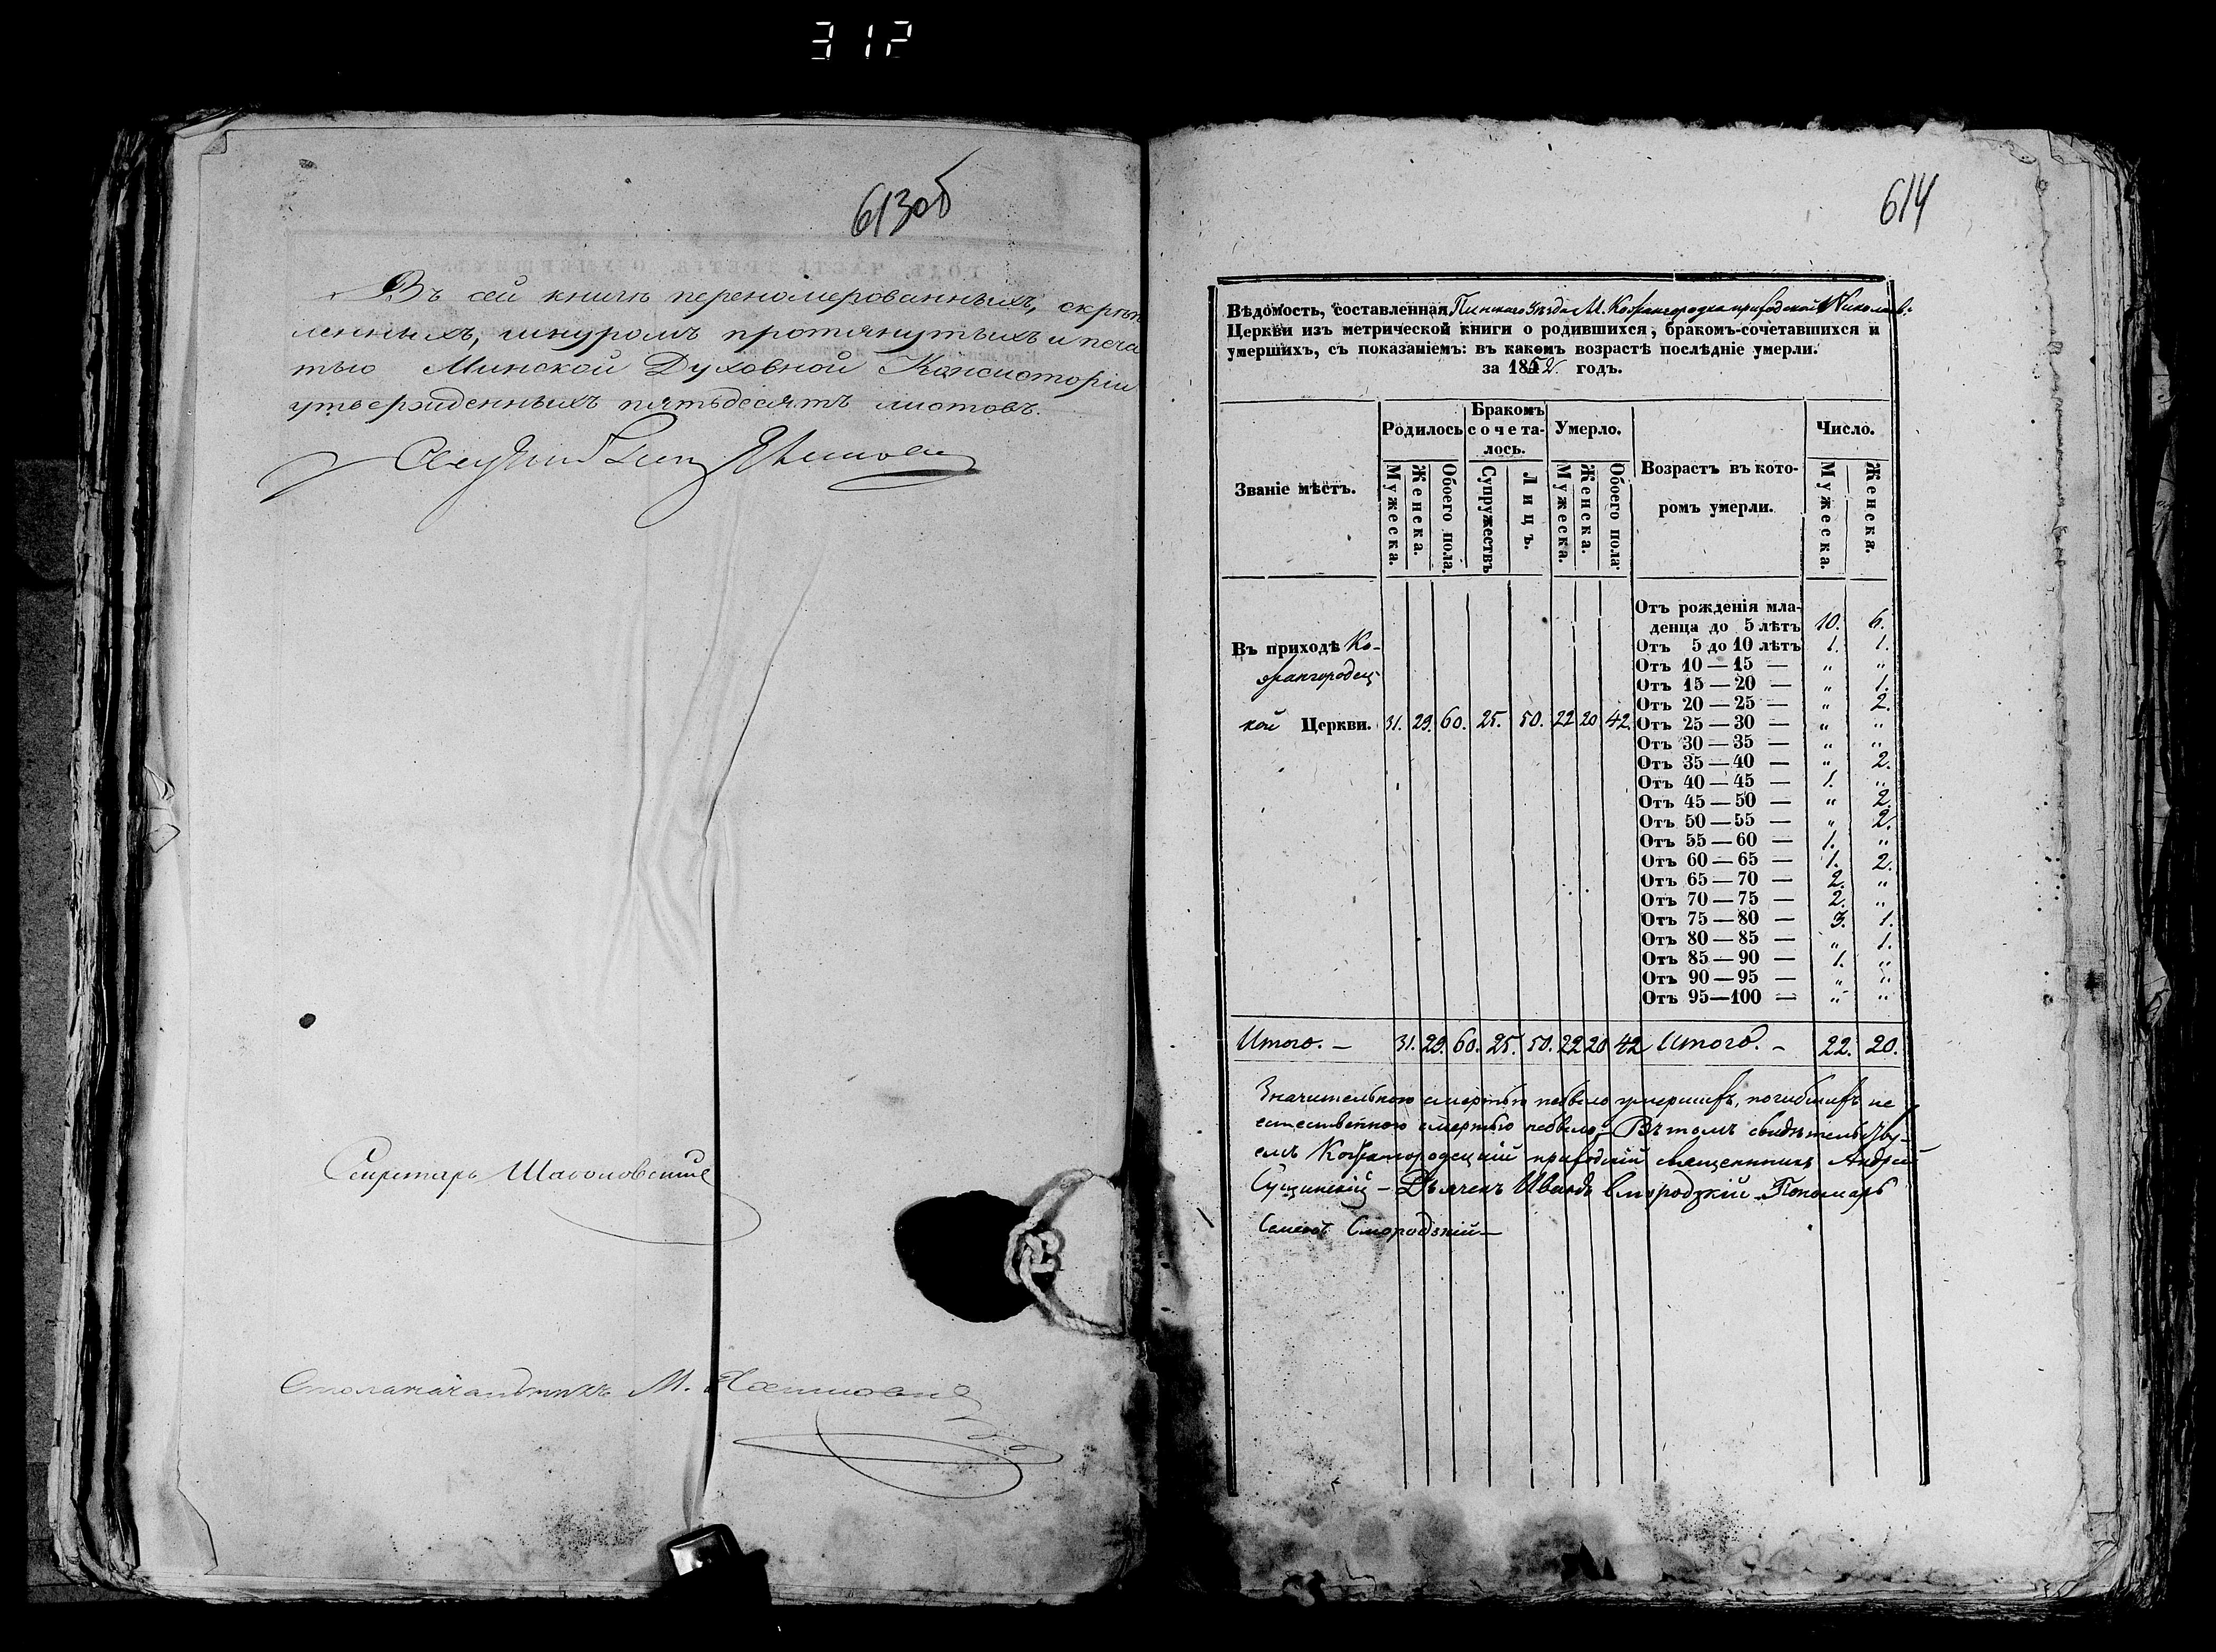 312
613об
Въ сей книгѣ перенумерованныхъ, скрѣп
ленныхъ, шнуромъ протянутыхъ и печа
тью Минской Духовной Консисторіи
утвержденныхъ пятьдесятъ листовъ.
Секретарь
Столоначальникъ М.
614
Вѣдомость, составленная Пинского Уѣзда М. Кожангородка приходской Николаев:
Церкви изъ метрической книги о родившихся, бракомъ-сочетавшихся и
умершихъ, съ показаніемъ: въ какомъ возрастѣ послѣдніе умерли.
за 1852 годъ.
Званіе мѣстъ. Родилось Бракомъ сочеталось. Умерло. Возрастъ въ которомъ умерли. Число.
Мужеска. Женска. Обоего пола. Супружествъ Лицъ. Мужеска. Женска. Обоего пола Мужеска. Женска.
Отъ рожденія мла-
денца до 5 лѣтъ 10. 6.
Отъ 5 до 10 лѣтъ 1. 1.
Отъ 10 — 15 — „ „
Отъ 15 — 20 — „ 1.
Отъ 20 — 25 — „ 2.
Въ приходѣ Ко-
жангородец-
кой Церкви. 31. 29. 60. 25. 50. 22 20 42. Отъ 25 — 30 — „ „
Отъ 30 — 35 — „ „
Отъ 35 — 40 — „ 2.
Отъ 40 — 45 — 1. „
Отъ 45 — 50 — „ 2.
Отъ 50 — 55 — „ 2.
Отъ 55 — 60 — 1. „
Отъ 60 — 65 — 1. 2.
Отъ 65 — 70 — 2. „
Отъ 70 — 75 — 2. „
Отъ 75 — 80 — 3. 1.
Отъ 80 — 85 — „ 1.
Отъ 85 — 90 — 1. „
Отъ 90 — 95 — „ „
Отъ 95—100 — „ „
Итого. — 31. 29. 60. 25. 50. 22 20 42 Итого. — 22. 20.
Значительною смертью небыло умершихъ, погибшихъ не
естественною смертью небыло, — Въ томъ свидѣтельству-
емъ Кожангородецкій приходскій священникъ Андрей
Сущинскій — Дьячекъ Иванъ Смородскій Пономарь
Семенъ Смородскій —